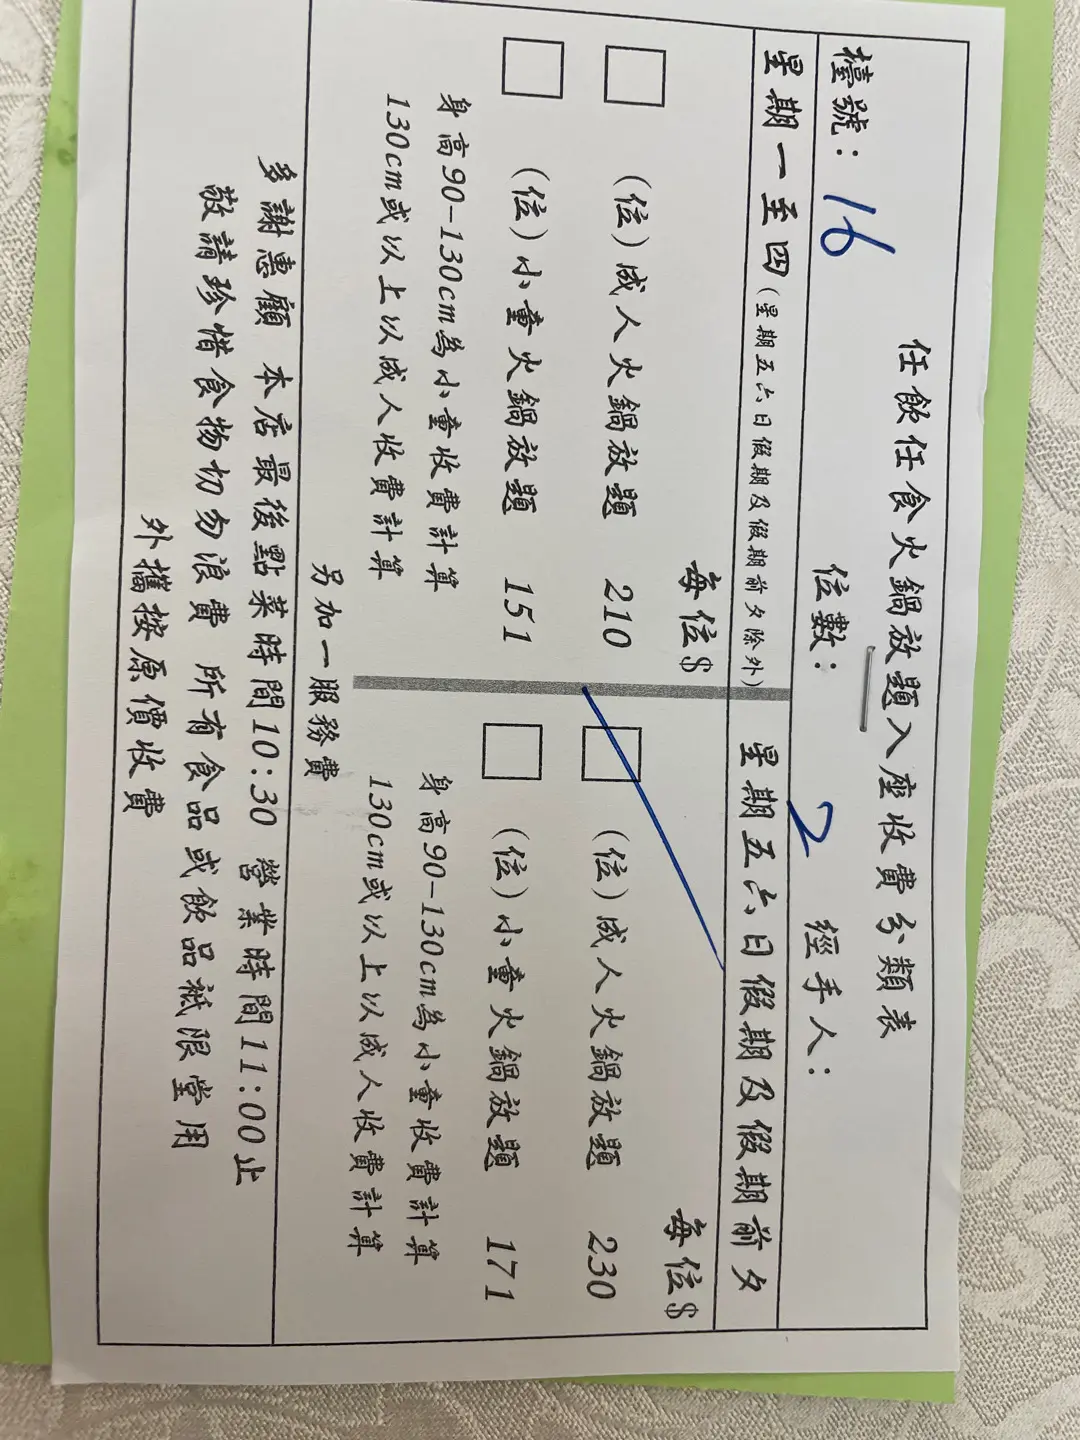 任飲任食火鍋放題入座收費分類表
檯號： 16 位數： 2 經手人：
星期一至四(星期五六日假期及假期前夕除外)
每位$
(位)成人火鍋放題 210
(位)小童火鍋放題 151
身高90-130cm為小童收費計算
130cm或以上以成人收費計算
星期五六日假期及假期前夕
每位$
(位)成人火鍋放題 230
(位)小童火鍋放題 171
身高90-130cm為小童收費計算
130cm或以上以成人收費計算
另加一服務費
多謝惠顧 本店最後點菜時間10:30 營業時間11:00止
敬請珍惜食物切勿浪費 所有食品或飲品祗限堂用
外攜按原價收費